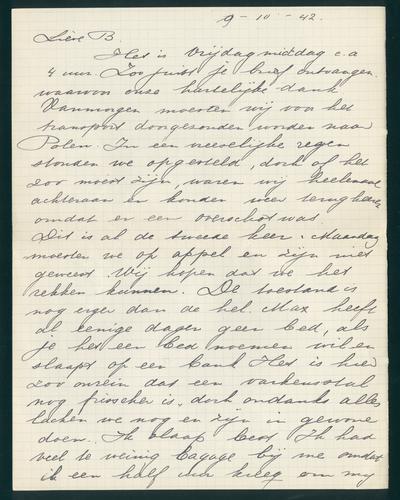 9-10-42.
Lieve B.
Het is Vrijdagmiddag ca
4 uur. Zoo juist je brief ontvangen.
waarvoor onze hartelijke dank
Vanmorgen moesten wij voor het
transport doorgezonden worden naar
Polen. In een vreeselijke regen
stonden we opgesteld, doch of het
zoo moest zijn, waren wij heelemaal
achteraan en konden weer terug
omdat er een overschot was.
Dit is al de tweede keer. Maandag
moesten we op appel en zijn niet
geweest. Wij hopen dat we het
rekken kunnen. De toestand is
nog erger dan de hel. Max heeft
al eenige dagen geen bed, als
je het een bed noemen wil en
slaapt op een bank Het is hier
zoo onrein dat een varkensstal
nog frisscher is, doch ondanks alles
lachen we nog en zijn in gewone
doen. Ik slaap best Ik had
veel te weinig bagage bij me omdat
ik een half uur kreeg om my